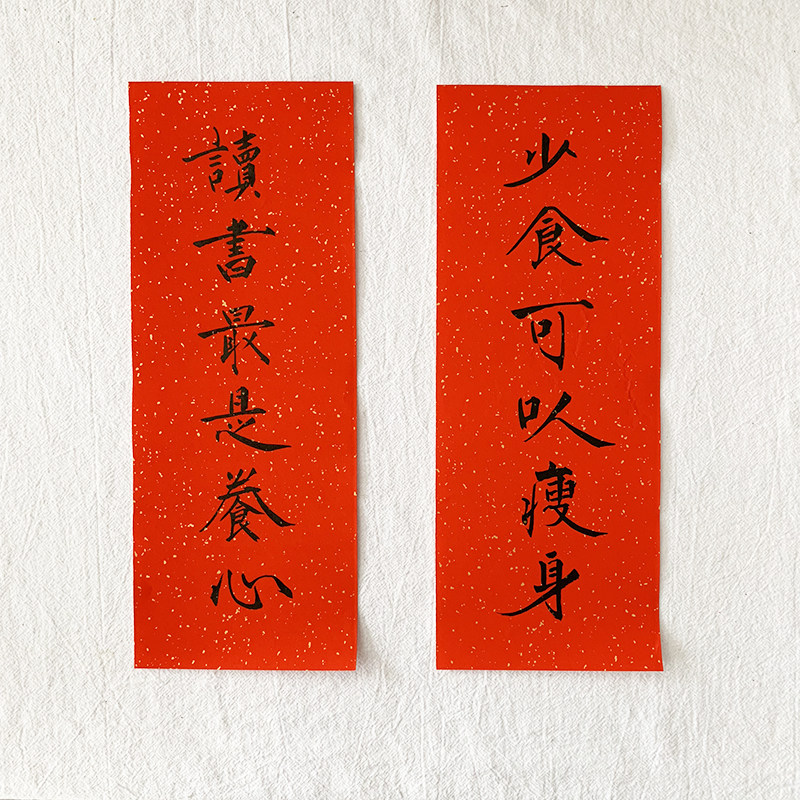 少食可以瘦身
讀書最是養心